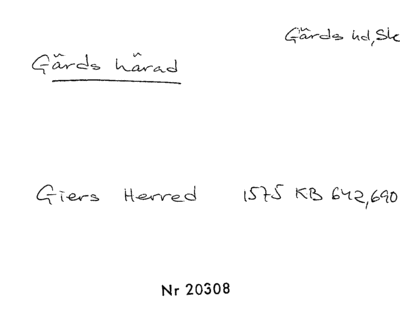 Gärds hd, Sk
Gärds härad
Giers Herred 1575 KB 642,690
Nr 20308